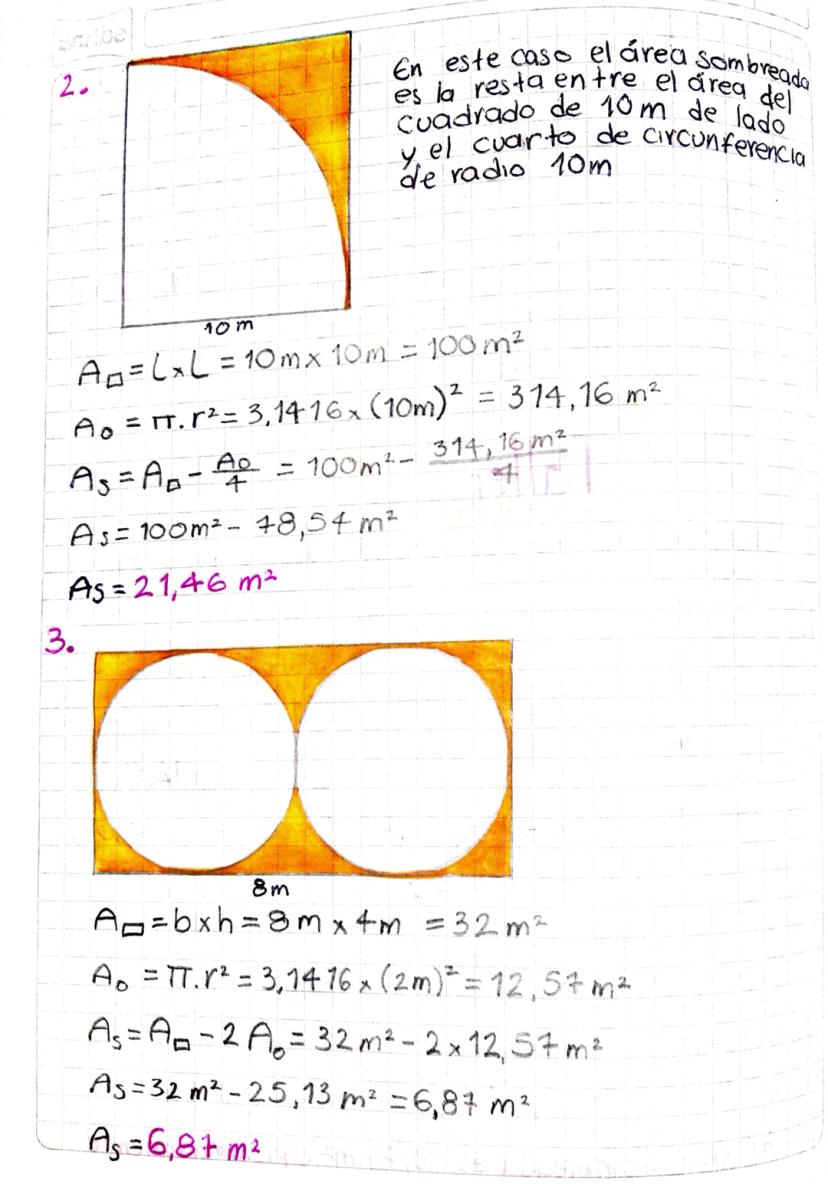 Scribe
2.
En este caso el área sombreada
es la resta entre el área del
cuadrado de 10m de lado
y el cuarto de circunferencia
de radio 10m
10 m
A□ = L x L = 10m x 10m = 100 m²
Ao = π. r² = 3,1416 x (10m)² = 314,16 m²
As = A□ - Ao/4 = 100m² - 314,16 m²/4
As = 100m² - 78,54 m²
As = 21,46 m²
3.
8m
A▭ = b x h = 8 m x 4m = 32 m²
Ao = π. r² = 3,1416 x (2m)² = 12,57 m²
As = A▭ - 2 Ao = 32 m² - 2 x 12,57 m²
As = 32 m² - 25,13 m² = 6,87 m²
As = 6,87 m²